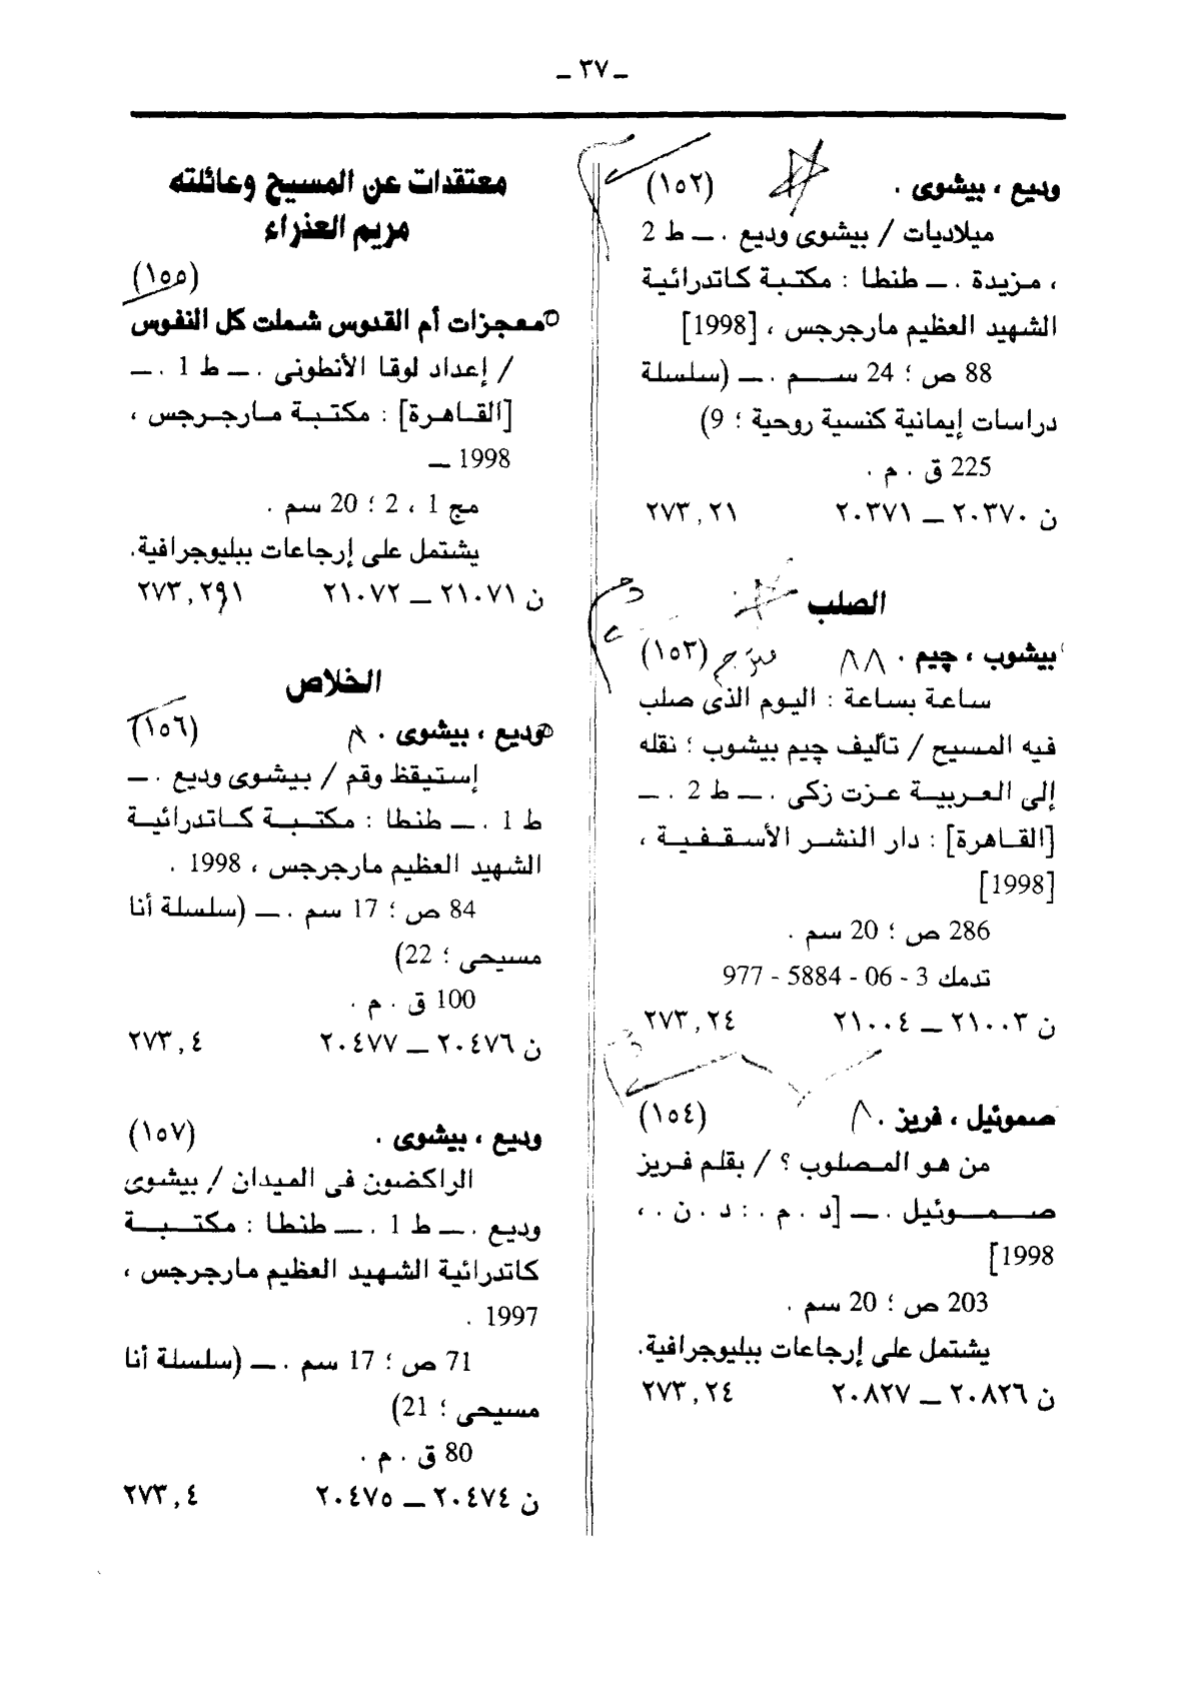 ـ ٣٧ ـ
وديع ، بيشوى . (١٥٢)
ميلاديات / بيشوى وديع . ـ ط 2
، مزيدة . ـ طنطا : مكتبة كاتدرائية
الشهيد العظيم مارجرجس ، [1998]
88 ص ؛ 24 سم . ـ (سلسلة
دراسات إيمانية كنسية روحية ؛ 9)
225 ق . م .
ن ٢٠٣٧٠ ـ ٢٠٣٧١ ٢٧٣,٢١
الصلب
بيشوب ، چيم . ٨٨ مترجم (١٥٣)
ساعة بساعة : اليوم الذى صلب
فيه المسيح / تأليف چيم بيشوب ؛ نقله
إلى العربية عزت زكى . ـ ط 2 . ـ
[القاهرة] : دار النشر الأسقفية ،
[1998]
286 ص ؛ 20 سم .
تدمك 3 - 06 - 5884 - 977
ن ٢١٠٠٣ ـ ٢١٠٠٤ ٢٧٣,٢٤
صموئيل ، فريز . ٨ (١٥٤)
من هو المصلوب ؟ / بقلم فريز
صموئيل . ـ [د . م . : د . ن . ،
1998]
203 ص ؛ 20 سم .
يشتمل على إرجاعات ببليوجرافية.
ن ٢٠٨٢٦ ـ ٢٠٨٢٧ ٢٧٣,٢٤
معتقدات عن المسيح وعائلته
مريم العذراء
(١٥٥)
معجزات أم القدوس شملت كل النفوس
/ إعداد لوقا الأنطونى . ـ ط 1 . ـ
[القاهرة] : مكتبة مارجرجس ،
1998 ـ
مج 1 ، 2 ؛ 20 سم .
يشتمل على إرجاعات ببليوجرافية.
ن ٢١٠٧١ ـ ٢١٠٧٢ ٢٧٣,٢٩١
الخلاص
وديع ، بيشوى . ٨ (١٥٦)
إستيقظ وقم / بيشوى وديع . ـ
ط 1 . ـ طنطا : مكتبة كاتدرائية
الشهيد العظيم مارجرجس ، 1998 .
84 ص ؛ 17 سم . ـ (سلسلة أنا
مسيحى ؛ 22)
100 ق . م .
ن ٢٠٤٧٦ ـ ٢٠٤٧٧ ٢٧٣,٤
وديع ، بيشوى . (١٥٧)
الراكضون فى الميدان / بيشوى
وديع . ـ ط 1 . ـ طنطا : مكتبة
كاتدرائية الشهيد العظيم مارجرجس ،
1997 .
71 ص ؛ 17 سم . ـ (سلسلة أنا
مسيحى ؛ 21)
80 ق . م .
ن ٢٠٤٧٤ ـ ٢٠٤٧٥ ٢٧٣,٤